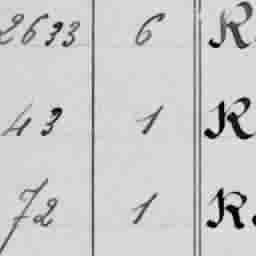 2633 6 K
43 1 K
72 1 K.